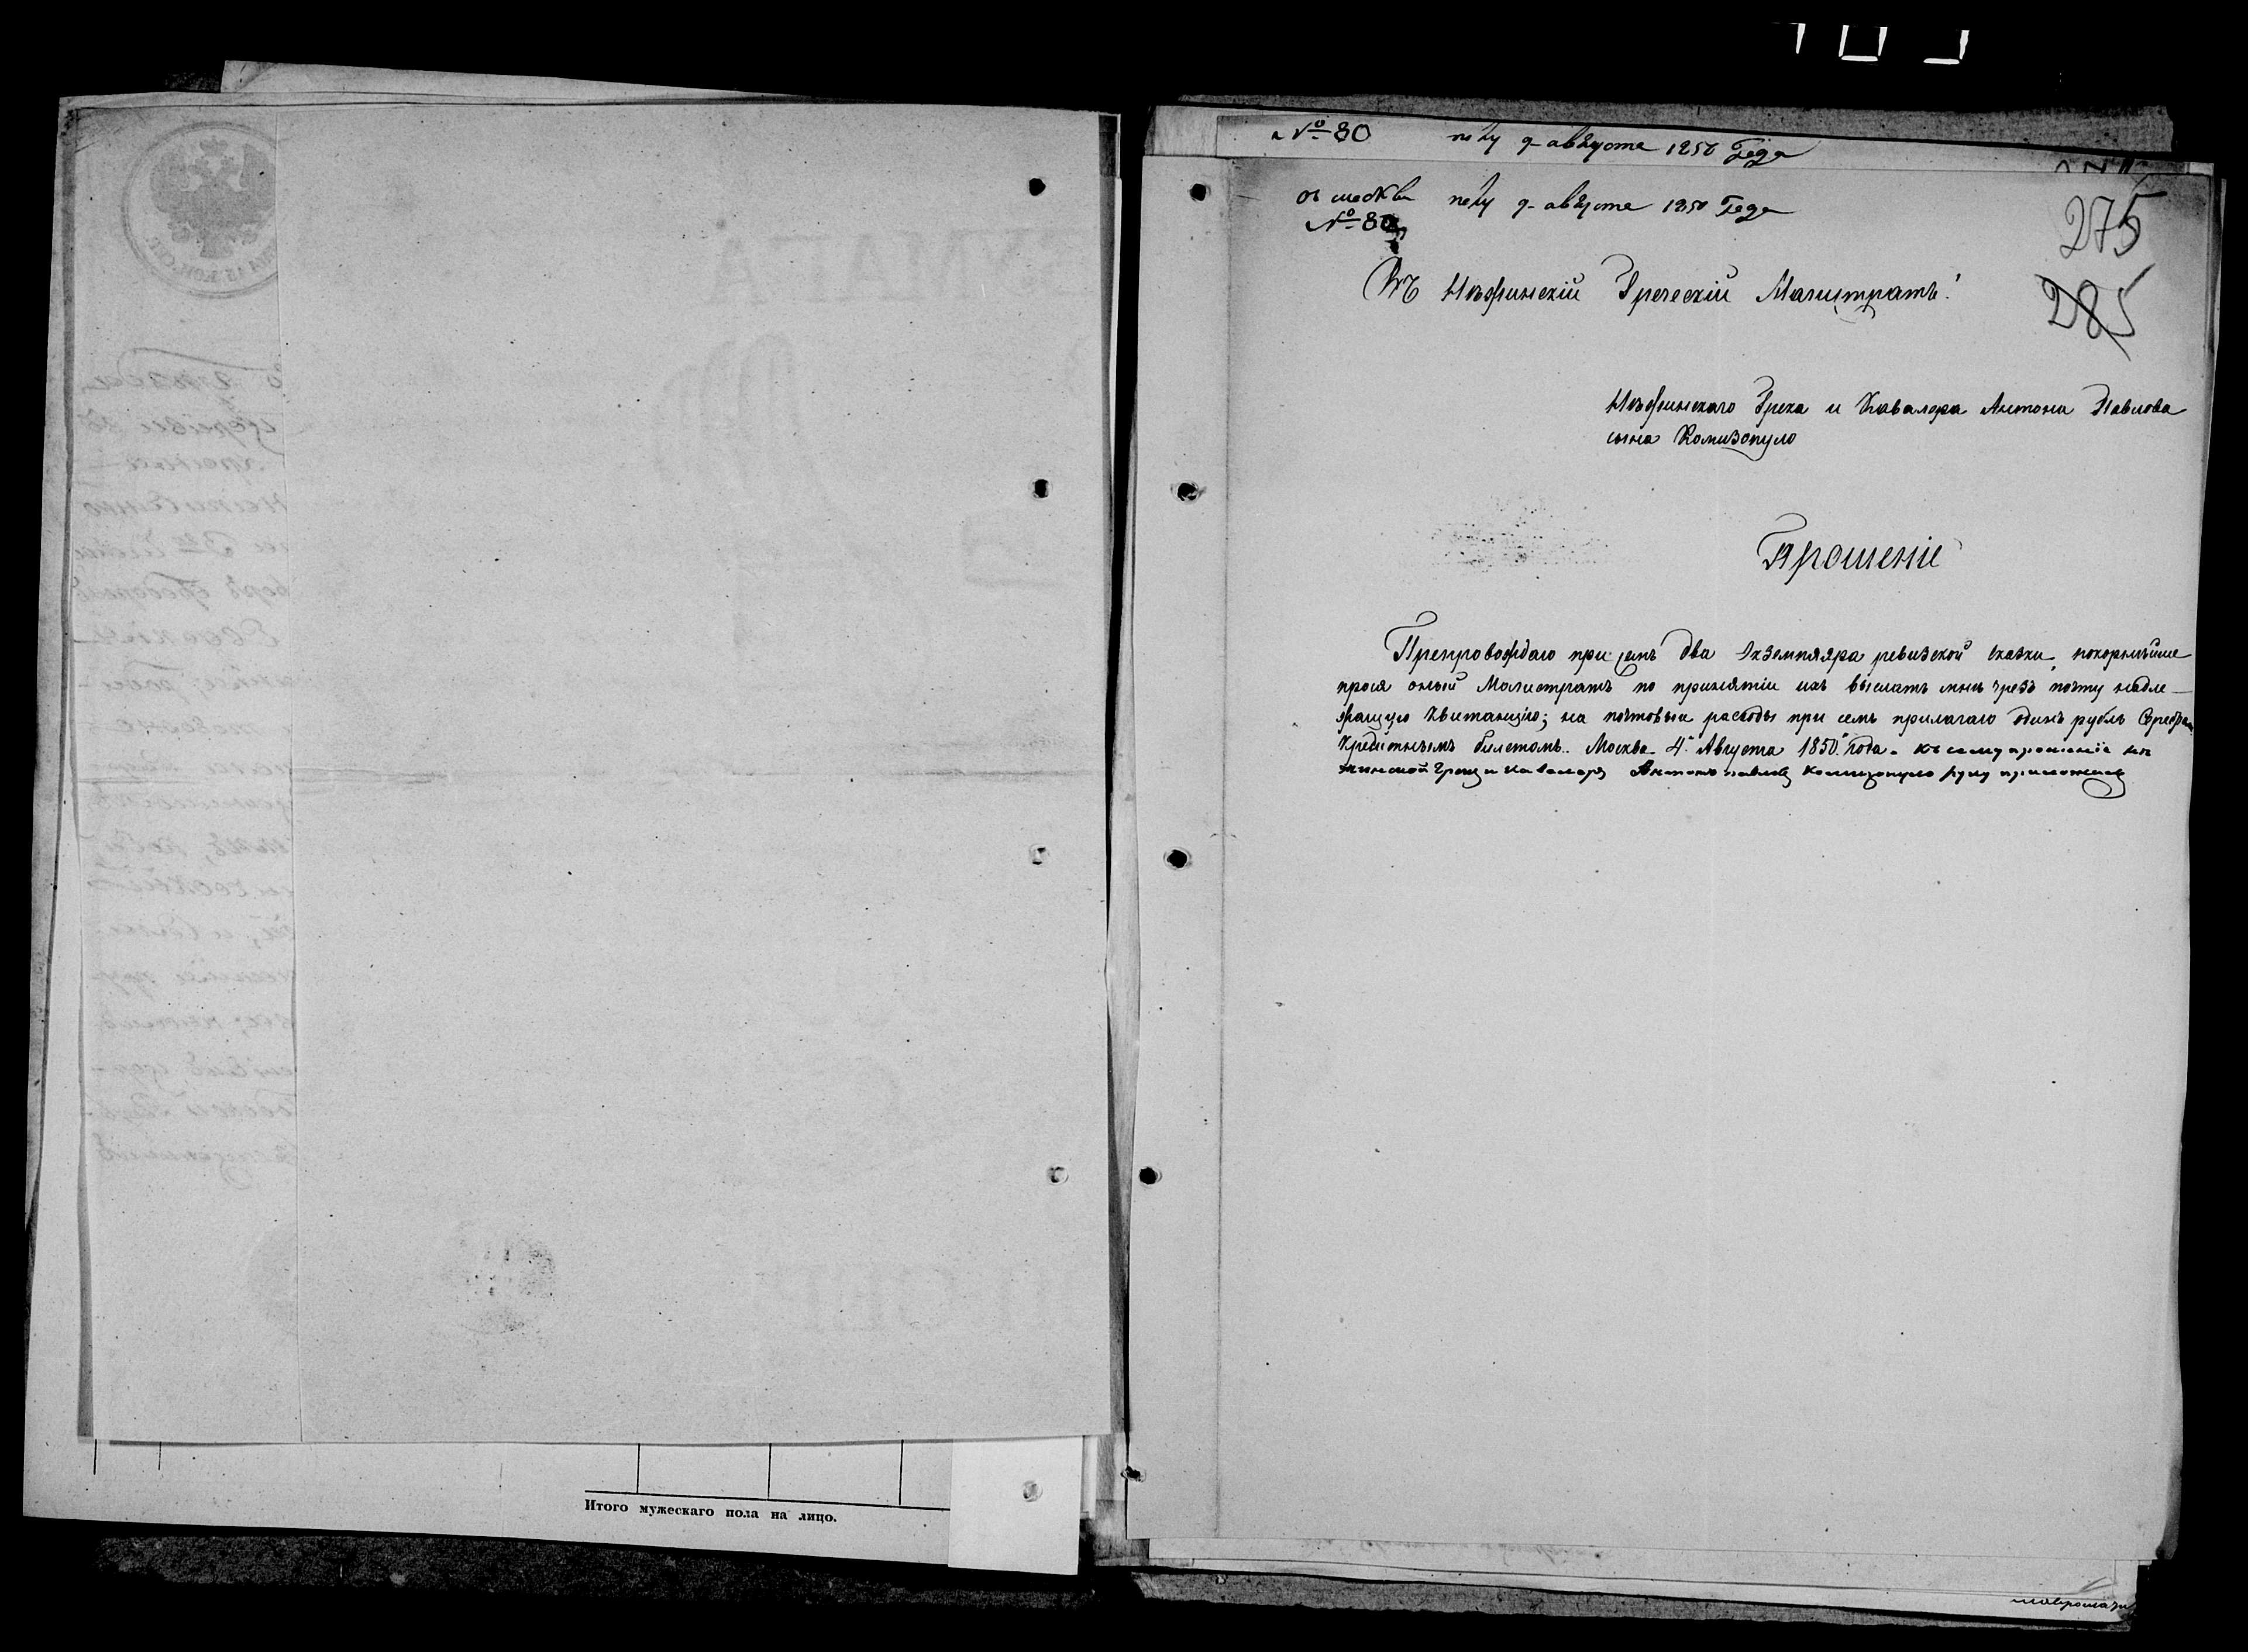 Итого мужескаго пола на лицо.
№ 80 полу 9 августа 1850 Года
№ 80 полу 9 августа 1850 Года
275
285
Въ Нѣжинскій Греческій Магистратъ!
Нѣжинскаго Грека и Кавалера Антона Павлова
сына Комизопуло
Прошеніе
Препровождаю при семъ два Экземпляра ревизской сказки, покорнѣйше
прося оный Магистратъ по принятіи ихъ выслать мнѣ чрезъ почту надле-
жащую Квитанцію; на почтовыи расходы при семъ прилагаю одинъ рубль Серебромъ
Кредитнымъ билетомъ. Москва 4. Августа 1850. года. Къ сему прошеніе нѣ
жинской Грецъ и кавалеръ Антонъ павловъ Комизопуло руку приложилъ